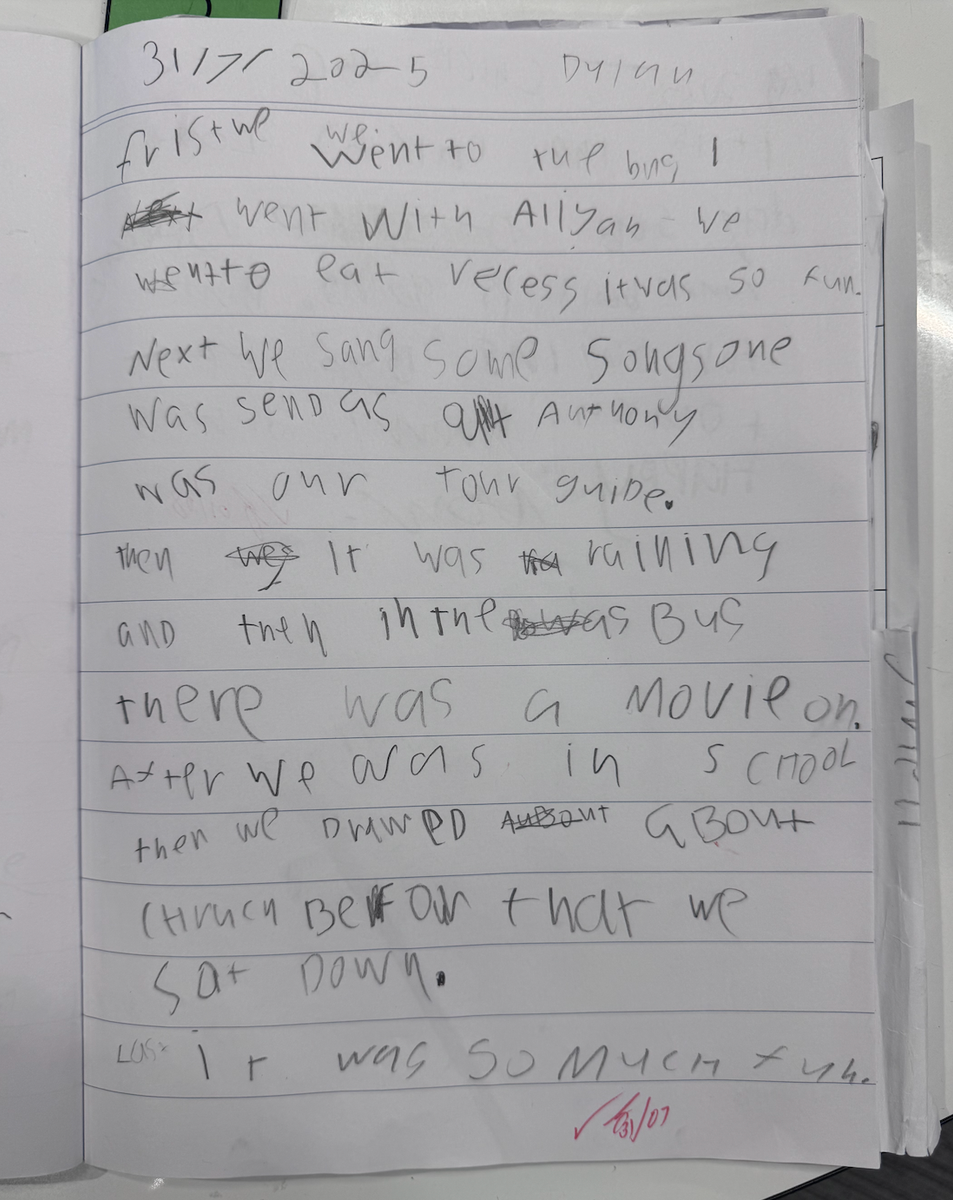 31/7/2025 Dylan
frist we we went to the bus I
went with Aliyah we
went to eat recess it was so fun.
Next we sang some songs one
was send as Anthony
was our tour guide.
then it was raining
and then in the Bus
there was a movie on.
After we was in SCHOOL
then we DraweD ABout
CHruch BeFor that we
sat Down.
Las it was so Much fun.
31/07